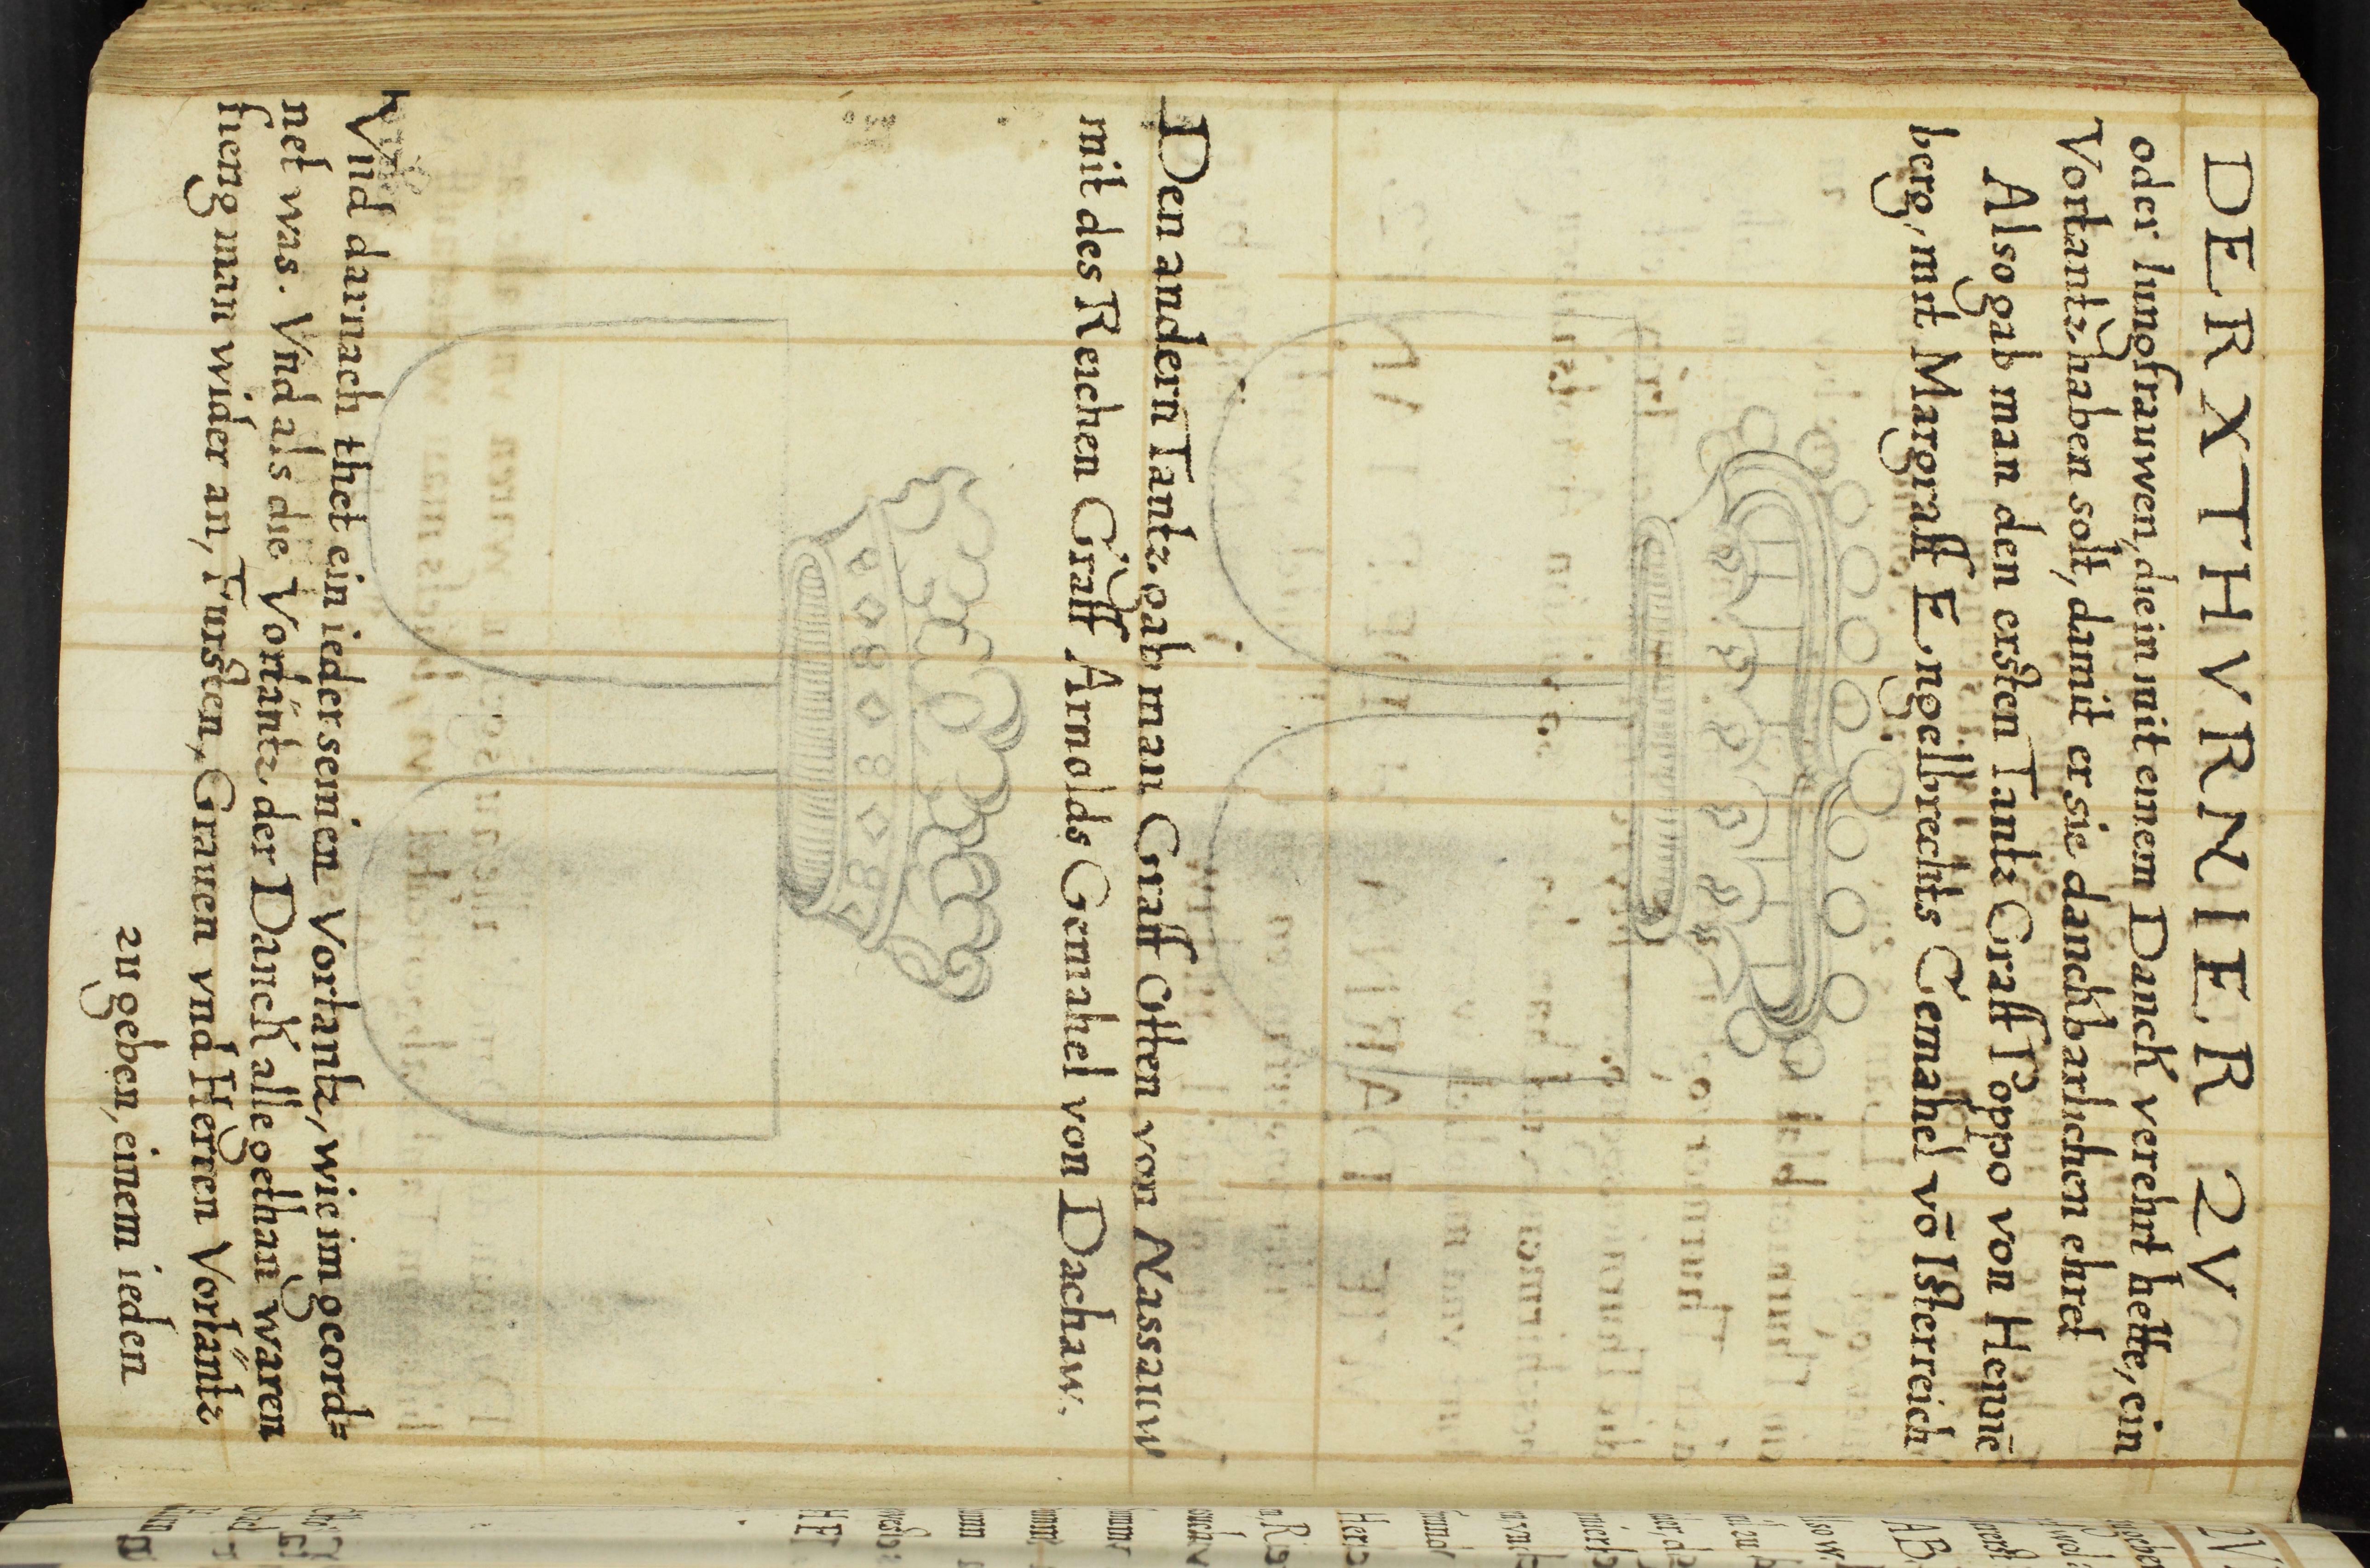 DER XTHVRNIER 2V
oder Iungfrauwen, die in mit einem Danck verehrt hette, ein
Vortantz haben solt, damit er sie danckbarlichen ehret
Also gab man den ersten Tantz Graff Poppo von Hennē
berg, mit Margraff Engelbrechts Gemahel vō Isterreich
Den andern Tantz gab man Graff Otten von Nassauw
mit des Reichen Graff Arnolds Gemahel von Dachaw.
Vnd darnach thet ein ieder seinen Vortantz, wie im geord=
net was. Vnd als die Vortäntz der Danck alle gethan waren
fieng man wider an, Fursten, Grauen vnd Herren Vortäntz
zu geben, einem ieden